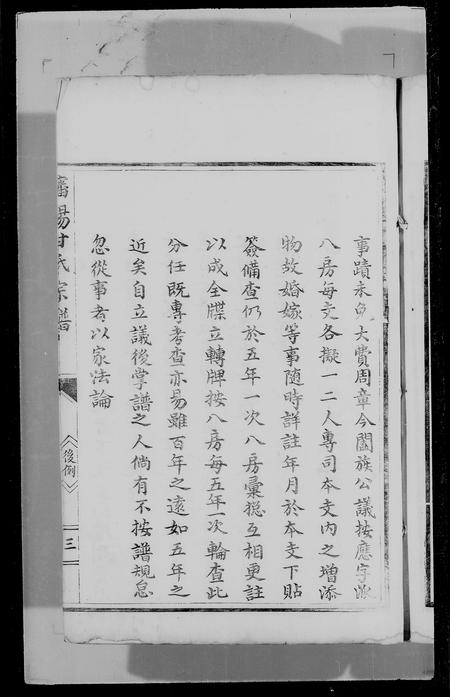 事蹟未免大費周章今闔族公議按應字派
八房每支各擬一二人專司本支內之增添
物故婚嫁等事隨時詳註年月於本支下貼
簽備查仍於五年一次八房彙總互相更註
以成全牒立轉牌按八房每五年一次輪查此
分任既專考查亦易雖百年之遠如五年之
近矣自立議後掌譜之人倘有不按譜規怠
忽從事者以家法論
瀋陽甘氏宗譜
後例
三